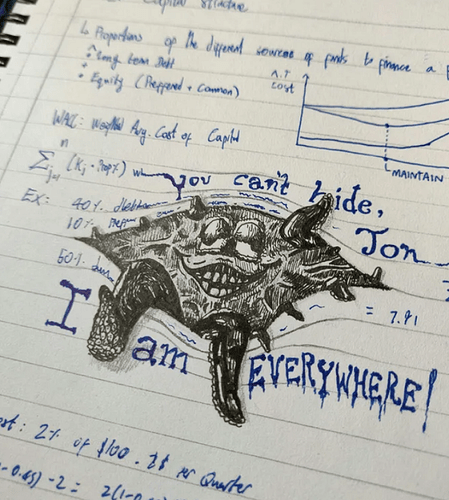 Capital Structure
↳ Proportions of the different sources of funds to finance a
• Long term Debt
• Equity (Preferred + Common)
A.T
cost
WACC: Weighted Avg. Cost of Capital
MAINTAIN
n
Σ (Kj · Propx)
j=1
You can't hide,
Jon
EX: 40%
10%
50%
= 7.91
I am EVERYWHERE!
2% of $100 . 2$ per Quarter
-2 = 2(1-0.